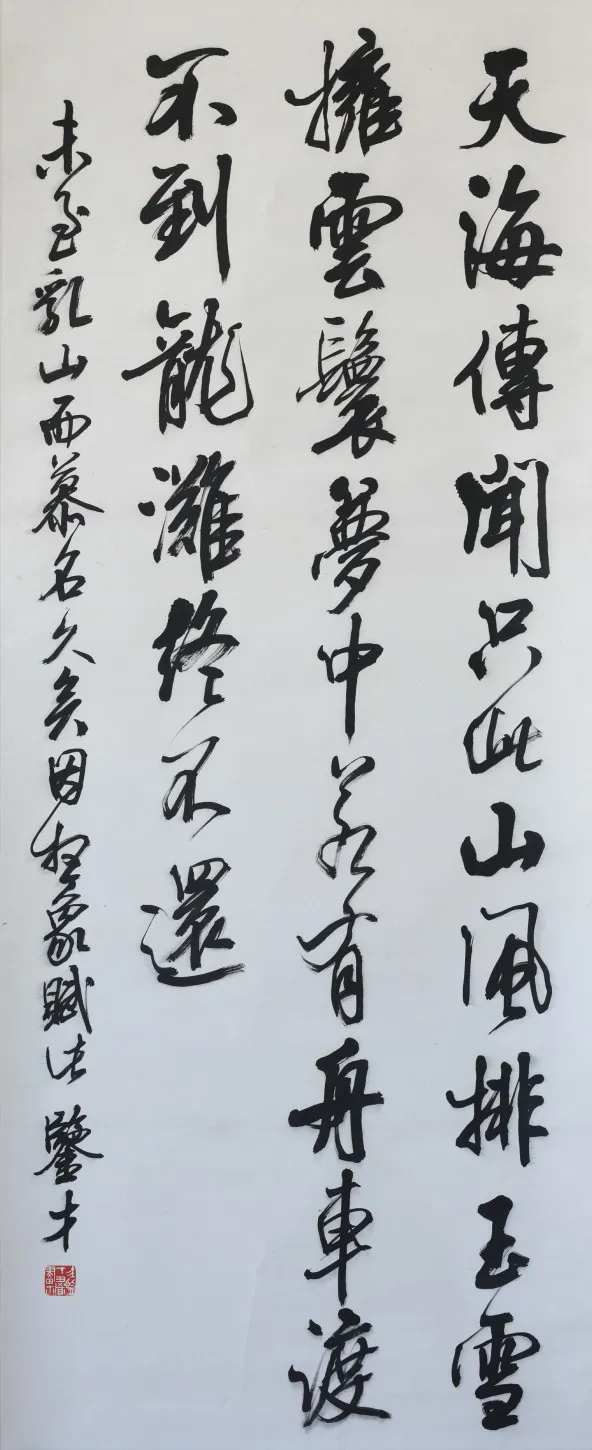 天海傳聞只此山風排玉雪
擁雲鬟夢中若有舟車渡
不到龍灘終不還
未至乳山而慕名久矣因想象賦 鑒才